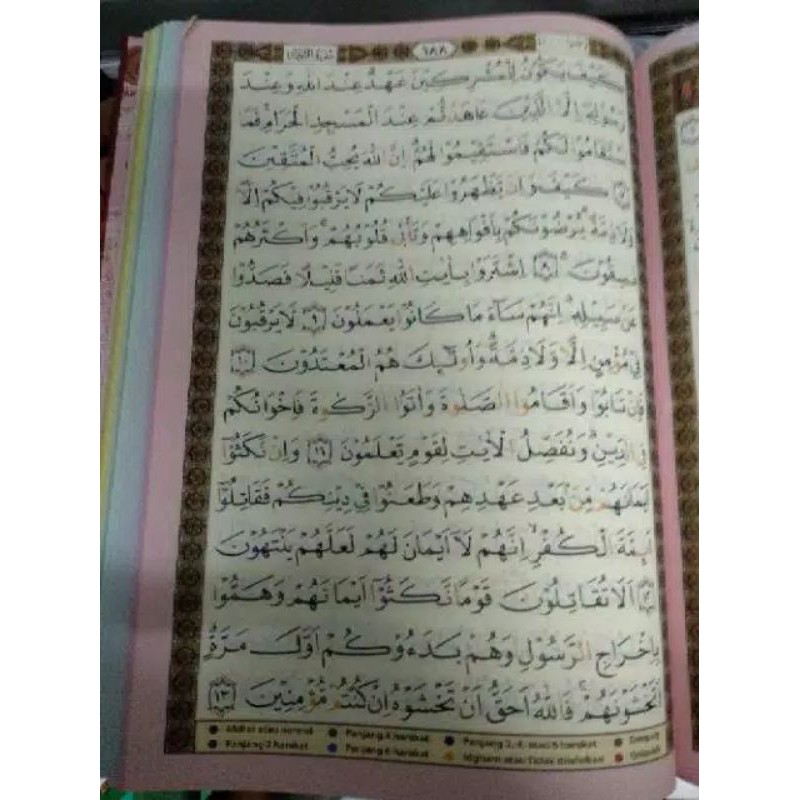 سُورَةُ التَّوْبَةِ ١٨٨
كَيْفَ يَكُوْنُ لِلْمُشْرِكِيْنَ عَهْدٌ عِنْدَ اللّٰهِ وَعِنْدَ
رَسُوْلِهٖٓ اِلَّا الَّذِيْنَ عَاهَدْتُّمْ عِنْدَ الْمَسْجِدِ الْحَرَامِ فَمَا
اسْتَقَامُوْا لَكُمْ فَاسْتَقِيْمُوْا لَهُمْ اِنَّ اللّٰهَ يُحِبُّ الْمُتَّقِيْنَ
٧ كَيْفَ وَاِنْ يَّظْهَرُوْا عَلَيْكُمْ لَا يَرْقُبُوْا فِيْكُمْ اِلًّا
وَّلَا ذِمَّةً يُرْضُوْنَكُمْ بِاَفْوَاهِهِمْ وَتَأْبٰى قُلُوْبُهُمْ وَاَكْثَرُهُمْ
فٰسِقُوْنَ ٨ اِشْتَرَوْا بِاٰيٰتِ اللّٰهِ ثَمَنًا قَلِيْلًا فَصَدُّوْا
عَنْ سَبِيْلِهٖ اِنَّهُمْ سَاۤءَ مَا كَانُوْا يَعْمَلُوْنَ ٩ لَا يَرْقُبُوْنَ
فِيْ مُؤْمِنٍ اِلًّا وَّلَا ذِمَّةً وَاُولٰۤىِٕكَ هُمُ الْمُعْتَدُوْنَ ١٠
فَاِنْ تَابُوْا وَاَقَامُوا الصَّلٰوةَ وَاٰتَوُا الزَّكٰوةَ فَاِخْوَانُكُمْ
فِى الدِّيْنِ وَنُفَصِّلُ الْاٰيٰتِ لِقَوْمٍ يَّعْلَمُوْنَ ١١ وَاِنْ نَّكَثُوْٓا
اَيْمَانَهُمْ مِّنْۢ بَعْدِ عَهْدِهِمْ وَطَعَنُوْا فِيْ دِيْنِكُمْ فَقَاتِلُوْٓا
اَىِٕمَّةَ الْكُفْرِ اِنَّهُمْ لَآ اَيْمَانَ لَهُمْ لَعَلَّهُمْ يَنْتَهُوْنَ
١٢ اَلَا تُقَاتِلُوْنَ قَوْمًا نَّكَثُوْٓا اَيْمَانَهُمْ وَهَمُّوْا
بِاِخْرَاجِ الرَّسُوْلِ وَهُمْ بَدَءُوْكُمْ اَوَّلَ مَرَّةٍ
اَتَخْشَوْنَهُمْ فَاللّٰهُ اَحَقُّ اَنْ تَخْشَوْهُ اِنْ كُنْتُمْ مُّؤْمِنِيْنَ ١٣
Panjang 4 harakat Panjang 2, 4, atau 6 harakat
Panjang 2 harakat Panjang 6 harakat Idgham atau Tidak